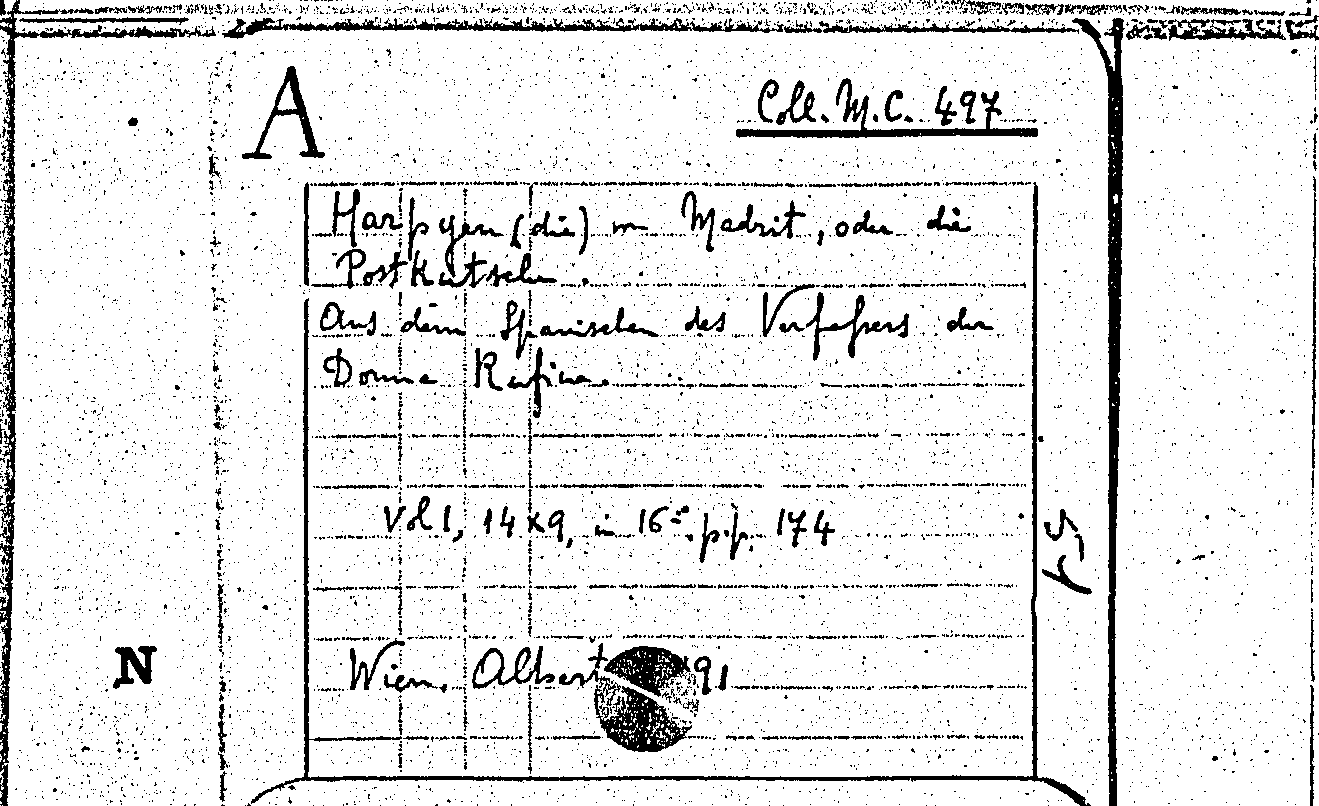 A
Coll. M.C. 497
Harpyen (die) in Madrit, oder die
Postkutsche.
Aus dem Spanischen des Verfaßers der
Donna Rufina.
Vol 1, 14 x 9, in 16º. p.p. 174
Wien. Albert 91
N